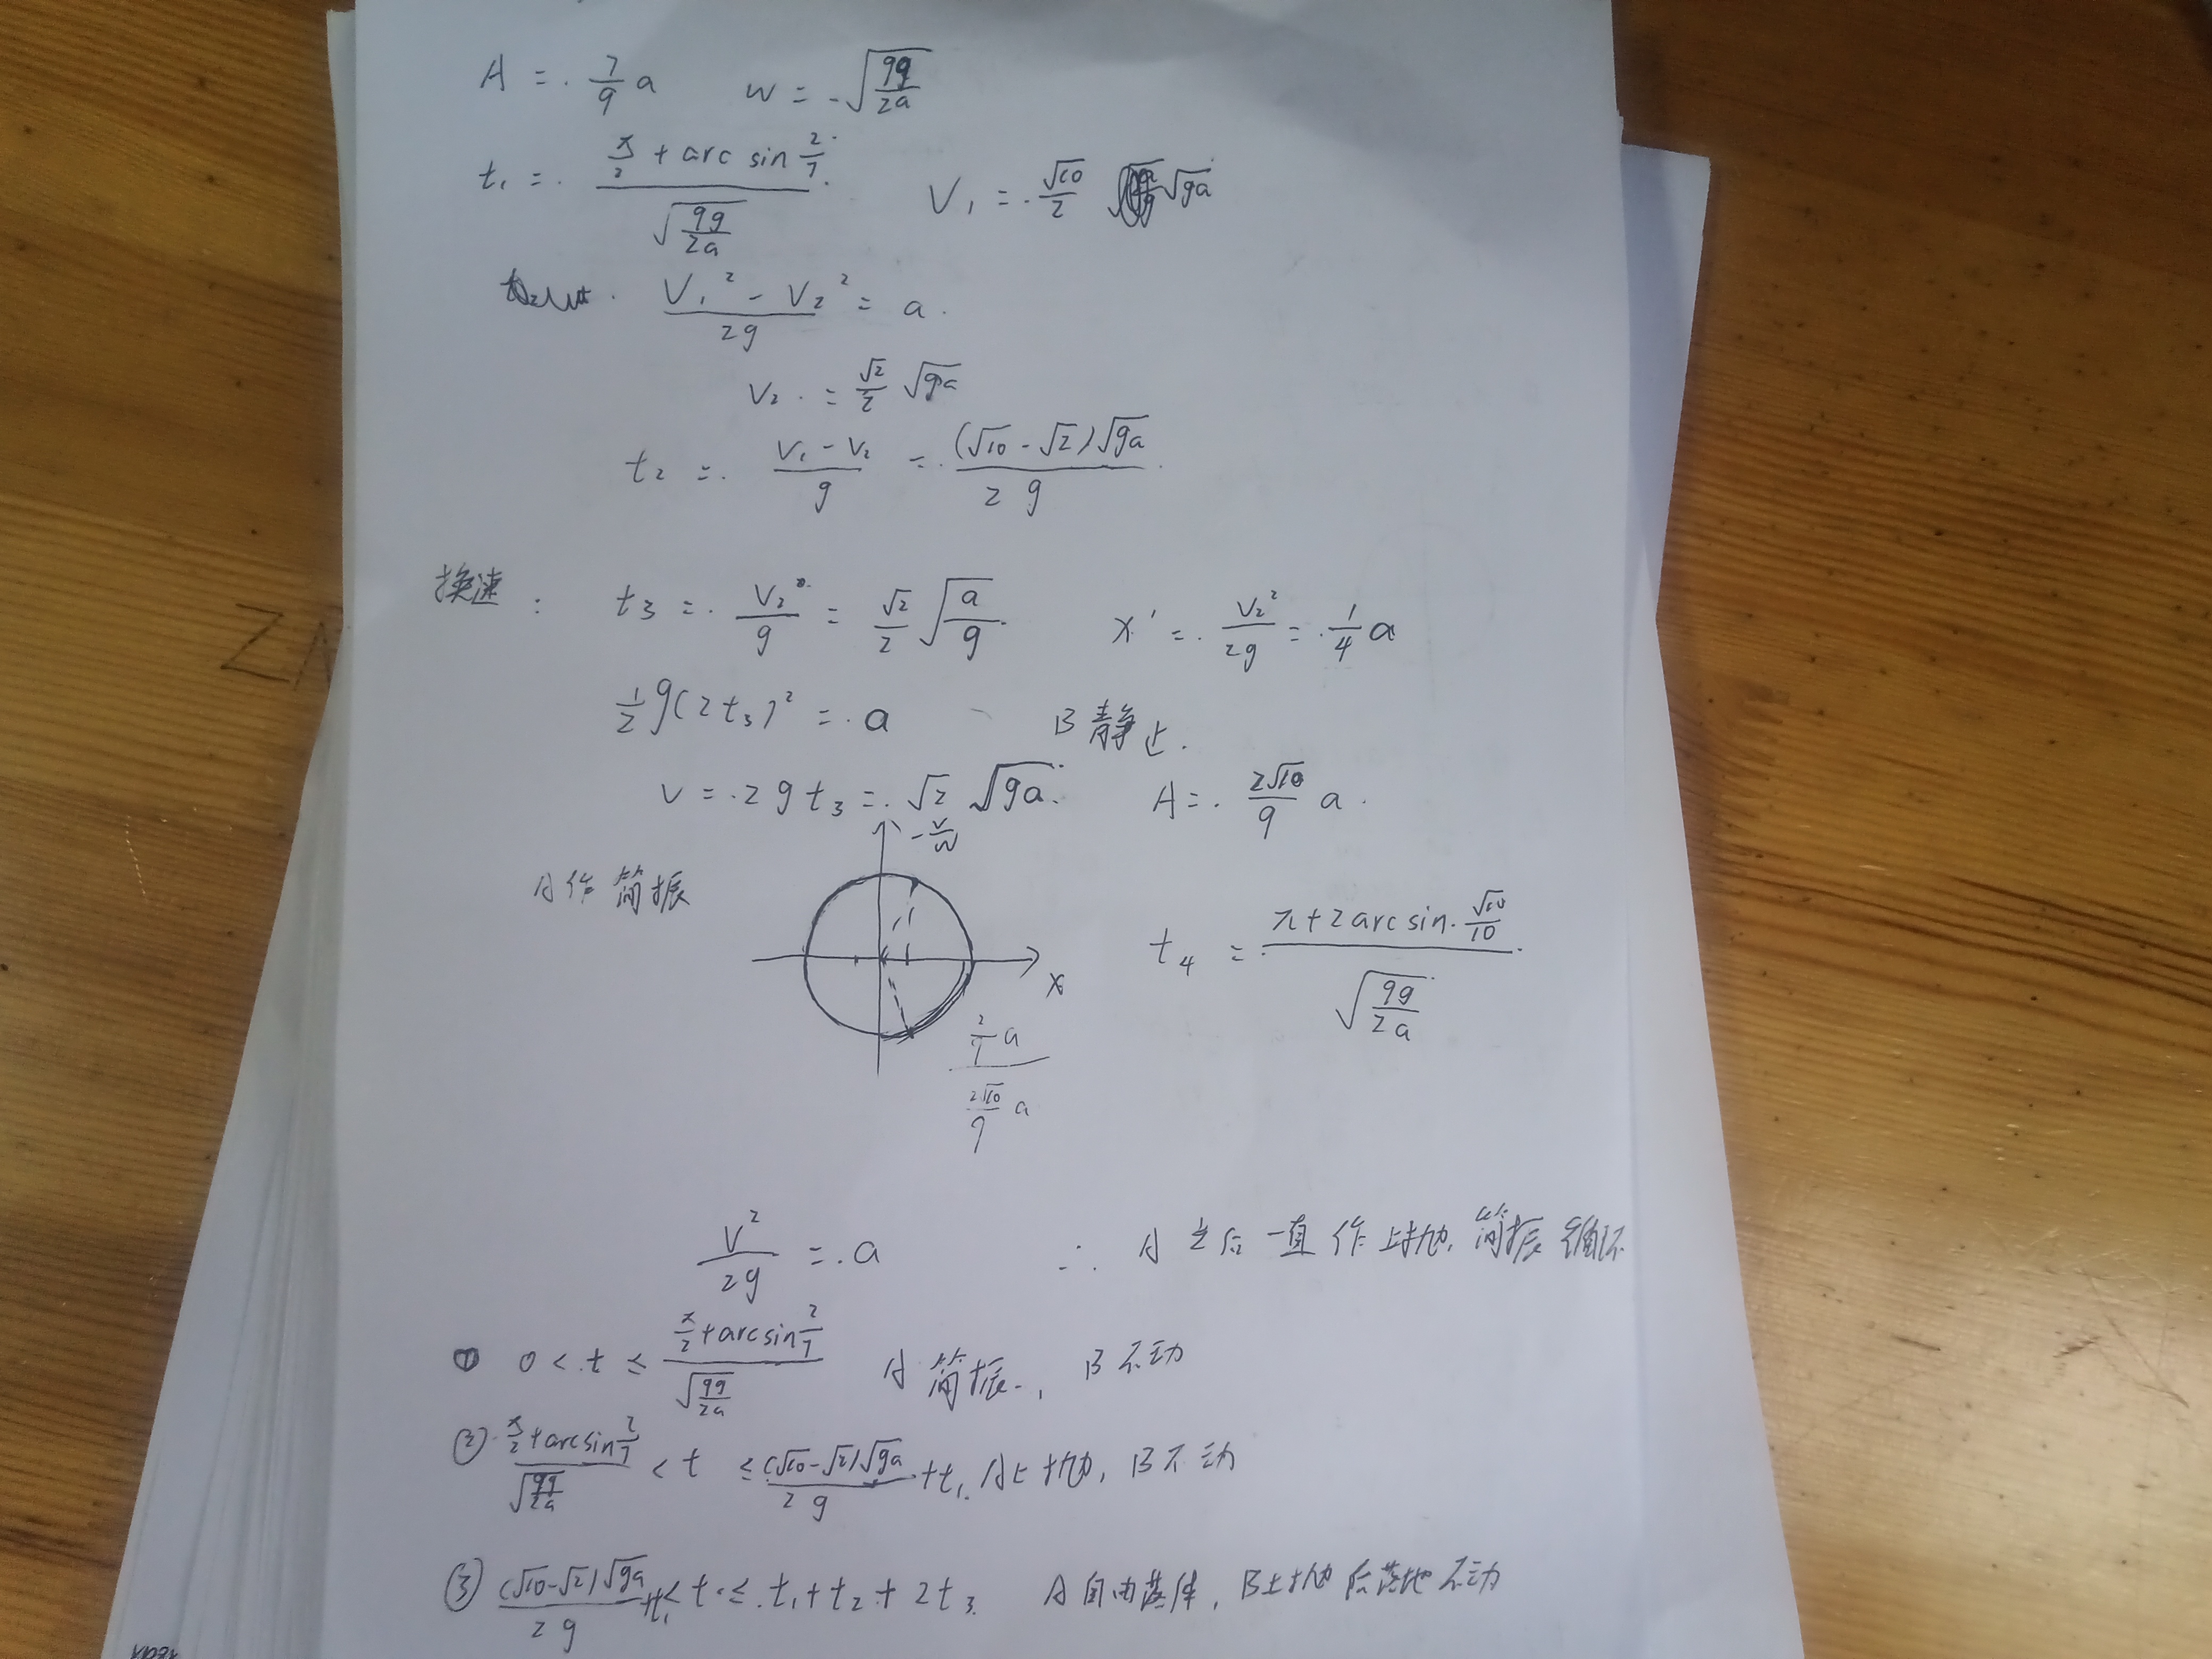 A = 7/9 a    w = √(9g/2a)
t₁ = (π/2 + arc sin 2/7) / √(9g/2a)    V₁ = √10/2 √ga
(V₁² - V₂²) / 2g = a.
V₂ = √2/2 √ga
t₂ = (V₁ - V₂) / g = (√10 - √2)√ga / 2g
换速: t₃ = V₂/g = √2/2 √(a/g)    x' = V₂²/2g = 1/4 a
1/2 g(2t₃)² = a    B静止.
v = 2gt₃ = √2 √ga.    A = 2√10/9 a.
-v/w
A作简振    x    t₄ = (π + 2arc sin √10/10) / √(9g/2a)
(2/9 a) / (2√10/9 a)
v²/2g = a    ∴ A之后一直作上抛,简振循环
① 0 < t ≤ (π/2 + arc sin 2/7) / √(9g/2a)    A简振, B不动
② (π/2 + arc sin 2/7) / √(9g/2a) < t ≤ (√10 - √2)√ga / 2g + t₁. A上抛, B不动
③ (√10 - √2)√ga / 2g + t₁ < t ≤ t₁ + t₂ + 2t₃    A自由落体, B上抛后落地不动
ZA